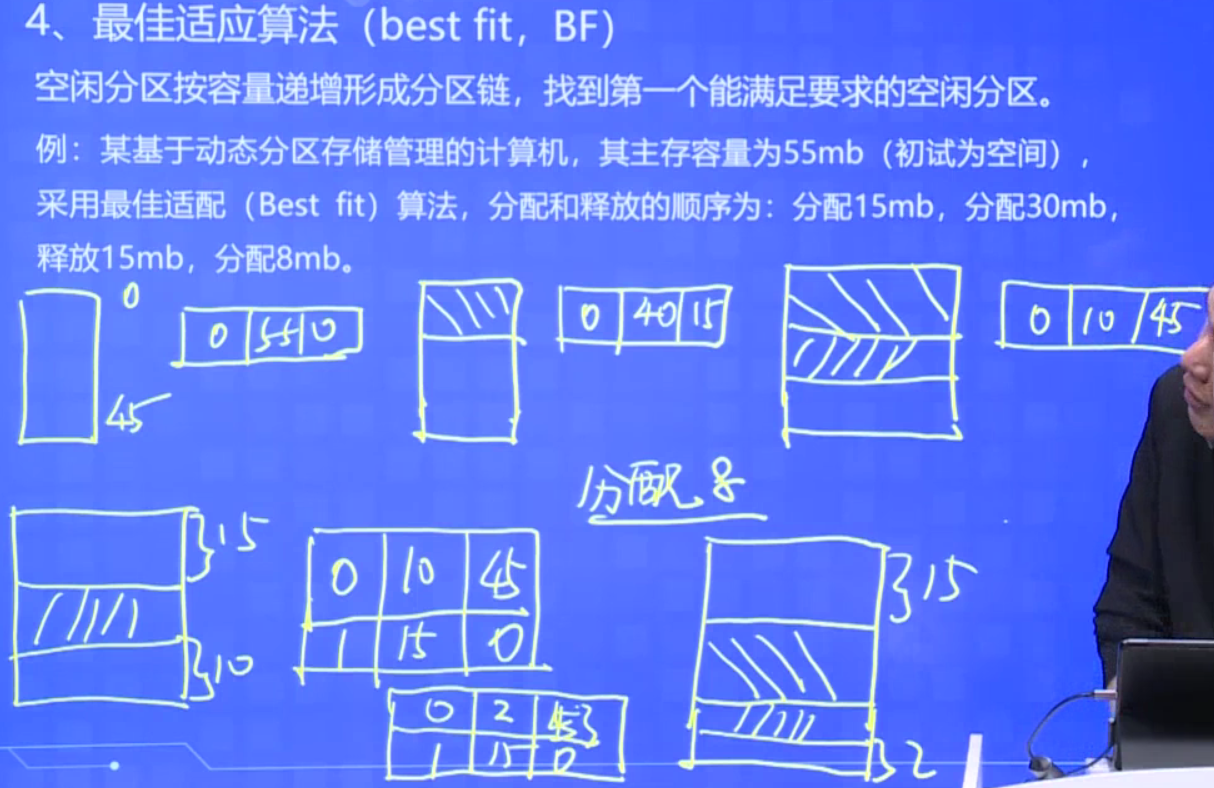 4、最佳适应算法（best fit，BF）
空闲分区按容量递增形成分区链，找到第一个能满足要求的空闲分区。
例：某基于动态分区存储管理的计算机，其主存容量为55mb（初试为空间），
采用最佳适配（Best fit）算法，分配和释放的顺序为：分配15mb，分配30mb，
释放15mb，分配8mb。
0
0 55 0
0 40 15
0 10 45
45
分配 8
15
0 10 45
1 15 0
10
15
0 2
1 15 0
2